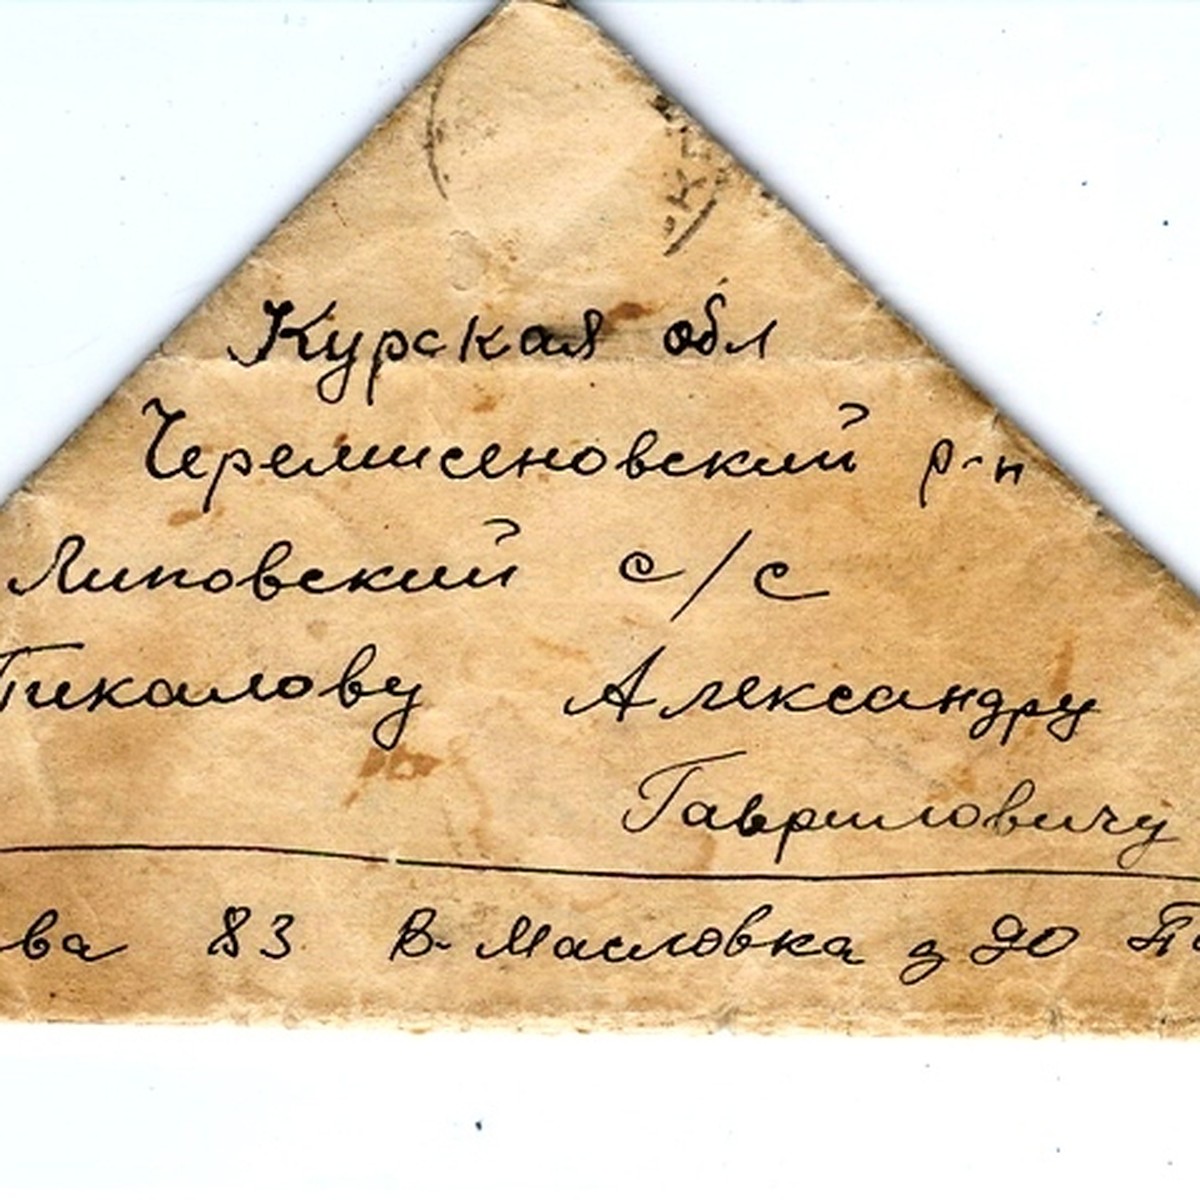 Курская обл
Черемисеновский р-н
Липовский с/с
Пикалову Александру
Гавриловичу
ва 83 В. Масловка д 20